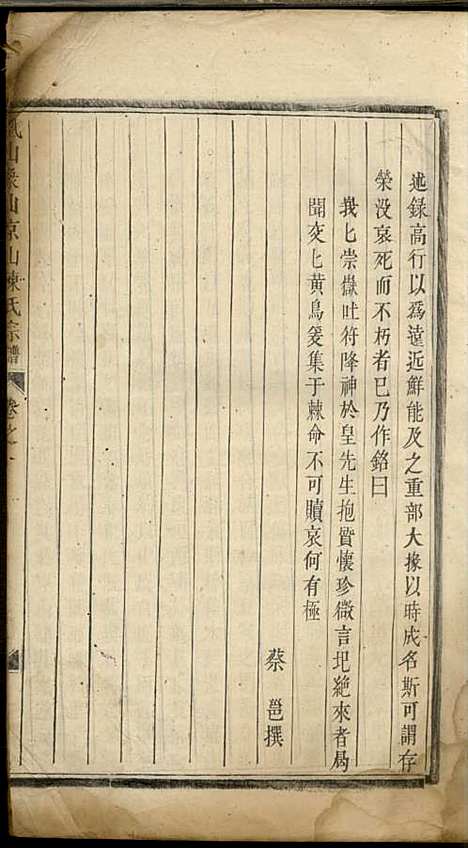 述録高行以為遠近鮮能及之重部大掾以時成名斯可謂存
榮没哀死而不朽者巳乃作銘曰
峩匕崇嶽吐符降神於皇先生抱寳懷珍微言圯絶來者曷
聞交匕黄鳥爰集于棘命不可贖哀何有極
蔡邕撰
山象山京山陳氏宗譜
卷之